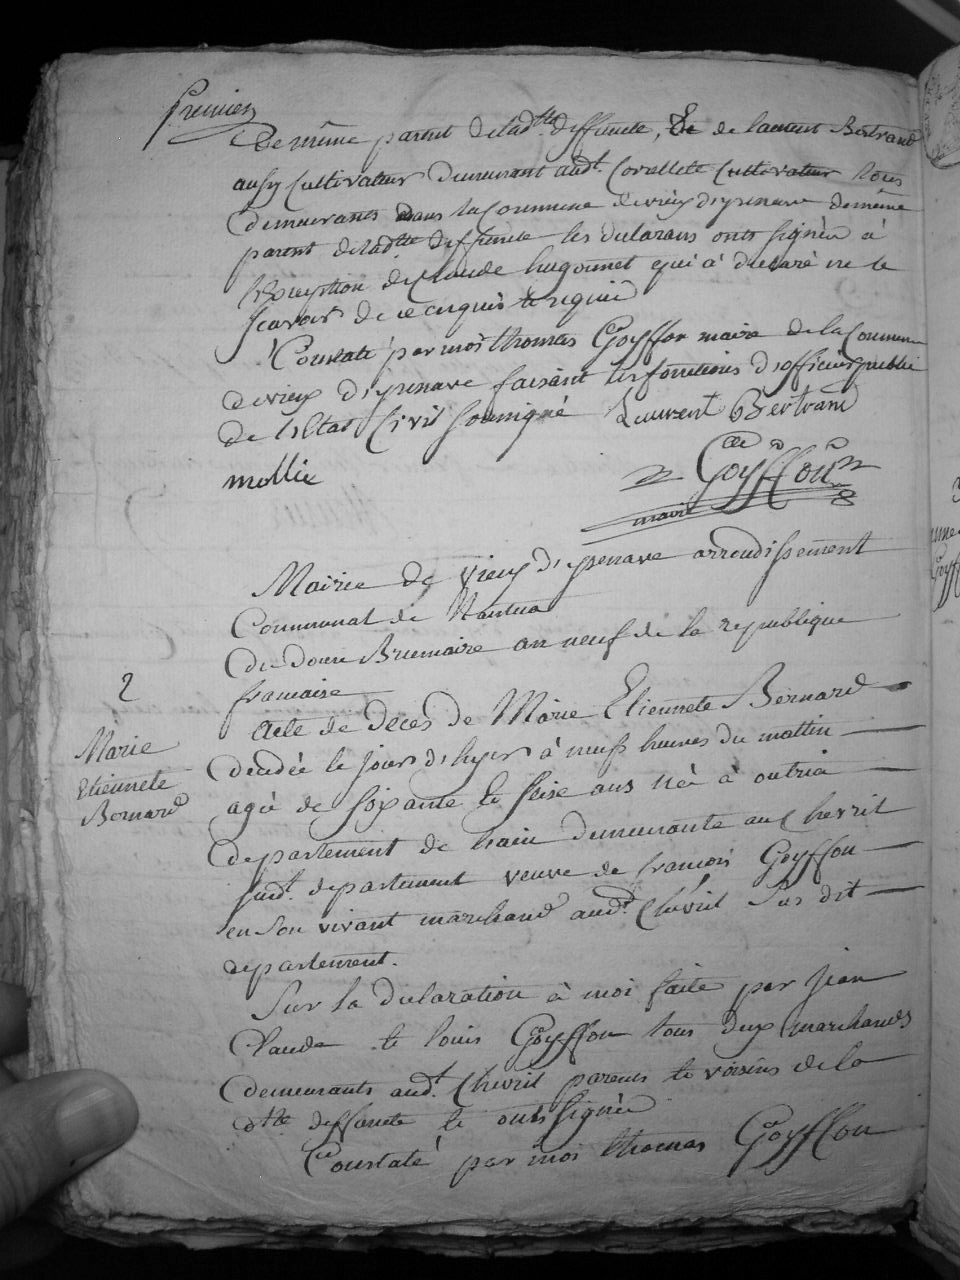 Premier
De même parent de lad.tte deffuncte, De de laurent Bertrand
aussy Cultivateur demeurant aud.t Corellete Cultivateur tous
demeurants dans la Commune de vieux d'yzenave de même
parent de lad.tte deffuncte les declarans onts signée à
l'exception de Claude hugonnet qui à declaré ne le
scavoir de ce enquis & requis
Constaté par moi thomas Goyffon maire de la Commune
de vieux d'yzenave faisant les fonctions d'officier public
de l'Etat Civil soussigné Laurent Bertrand
mollie Goyffon
maire
Mairie de vieux d'yzenave arrondissement
Communal de Nantua
du douze Brumaire an neuf de la republique
francaise
2
Marie
Etiennete
Bernard
acte de deces de Marie Etiennete Bernard
decedée le jour d'hyer à neuf heures du mattin
agée de soixante et seise ans née à outria
departement de l'ain demeurante au Chevril
sud.t departement veuve de francois Goyffon
en son vivant marchand aud.t Chevril sus dit
departement.
Sur la declaration à moi faite par jean
Claude et louis Goyffon tous deux marchands
demeurants aud.t Chevril parents et voisins de la
d.tte deffuncte et onts signée
Constaté par moi thomas Goyffon